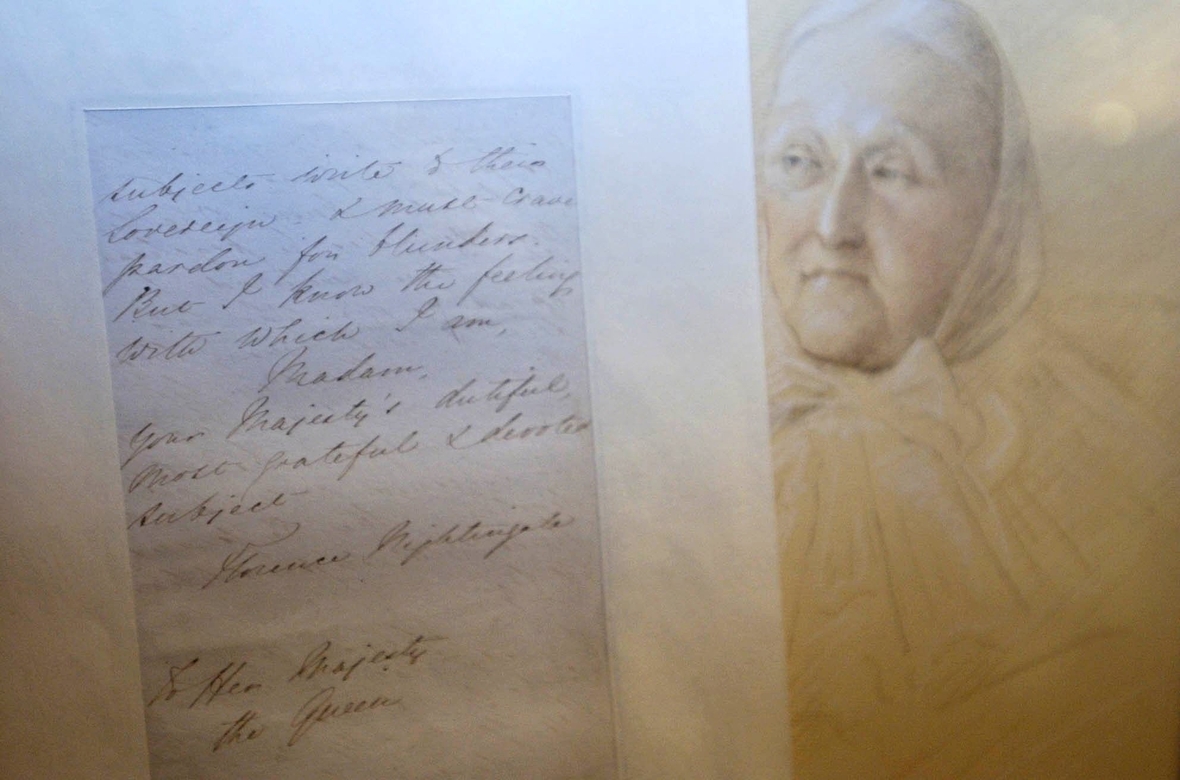 subjects write to their
Sovereign. & must crave
pardon for blunders.
But I know the feeling
with which I am,
Madam,
Your Majesty's dutiful,
most grateful & devoted
subject
Florence Nightingale
To Her Majesty
the Queen